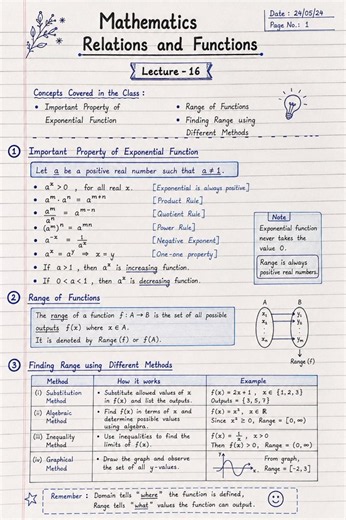 Mathematics
Relations and Functions
Date : 24/05/24
Page No.: 1
Lecture - 16
Concepts Covered in the Class :
• Important Property of Exponential Function
• Range of Functions
• Finding Range using Different Methods
1 Important Property of Exponential Function
Let a be a positive real number such that a ≠ 1.
• aˣ > 0 , for all real x. [Exponential is always positive]
• aᵐ · aⁿ = aᵐ⁺ⁿ [Product Rule]
• aᵐ/aⁿ = aᵐ⁻ⁿ [Quotient Rule]
• (aᵐ)ⁿ = aᵐⁿ [Power Rule]
• a⁻ˣ = 1/aˣ [Negative Exponent]
• aˣ = aʸ ⇒ x = y [One-one property]
• If a > 1 , then aˣ is increasing function.
• If 0 < a < 1 , then aˣ is decreasing function.
Note
Exponential function
never takes the
value 0.
Range is always
positive real numbers.
2 Range of Functions
The range of a function f : A → B is the set of all possible
outputs f(x) where x ∈ A.
It is denoted by Range(f) or f(A).
A B
x₁ y₁
x₂ y₂
Range (f)
3 Finding Range using Different Methods
Method How it works Example
(i) Substitution Method • Substitute allowed values of x in f(x) and list the outputs. f(x) = 2x + 1 , x ∈ {1, 2, 3} Outputs = {3, 5, 7}
(ii) Algebraic Method • Find f(x) in terms of x and determine possible values using algebra. f(x) = x² , x ∈ ℝ Since x² ≥ 0, Range = [0, ∞)
(iii) Inequality Method • Use inequalities to find the limits of f(x). f(x) = 1/x , x > 0 Then f(x) > 0, Range = (0, ∞)
(iv) Graphical Method • Draw the graph and observe the set of all y-values. From graph, Range = [-2, 3]
Remember : Domain tells "where" the function is defined,
Range tells "what" values the function can output.